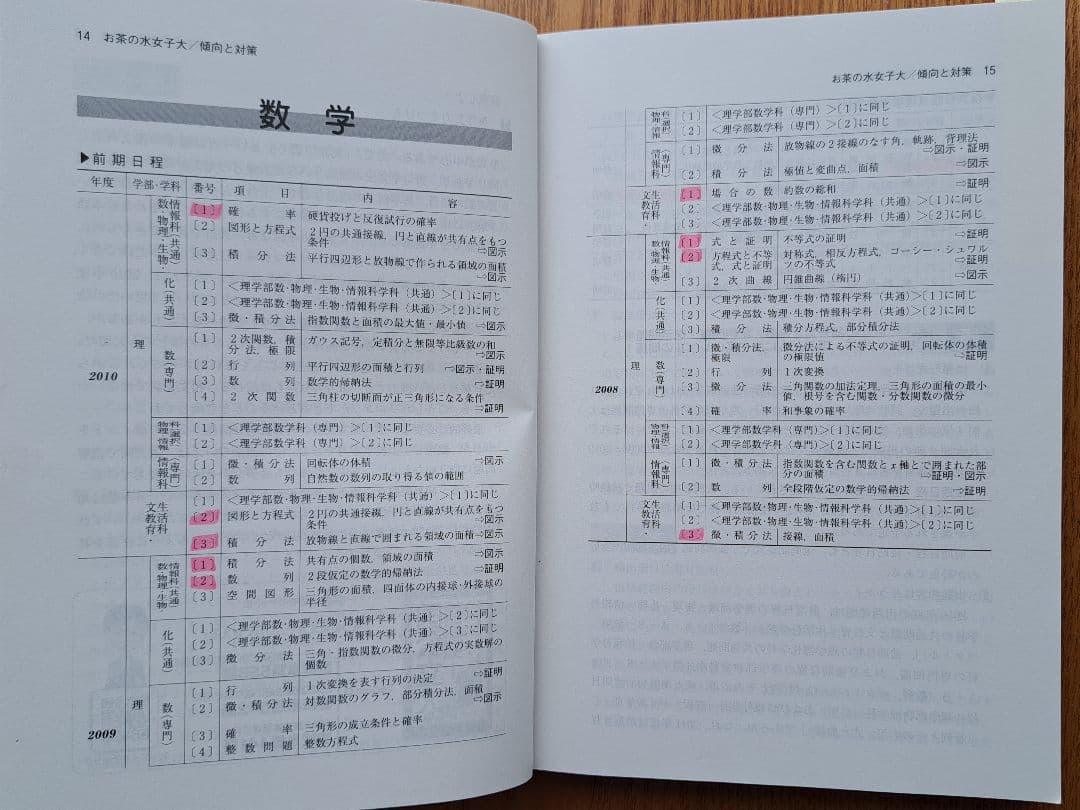 14 お茶の水女子大／傾向と対策
数 学
▶前期日程
年度 学部・学科 番号 項目 内容
2010
理
数・物理・生物・情報科(共通)
〔1〕 確率 硬貨投げと反復試行の確率
〔2〕 図形と方程式 2円の共通接線，円と直線が共有点をもつ
条件 ⇨図示
〔3〕 積分法 平行四辺形と放物線で作られる領域の面積
⇨図示
化(共通)
〔1〕 ＜理学部数・物理・生物・情報科学科（共通）＞〔1〕に同じ
〔2〕 ＜理学部数・物理・生物・情報科学科（共通）＞〔2〕に同じ
〔3〕 微・積分法 指数関数と面積の最大値・最小値 ⇨図示
数(専門)
〔1〕 2次関数，積 ガウス記号，定積分と無限等比級数の和
分法，極限 ⇨図示
〔2〕 行列 平行四辺形の面積と行列 ⇨図示・証明
〔3〕 数列 数学的帰納法 ⇨証明
〔4〕 2次関数 三角柱の切断面が正三角形になる条件
⇨証明
物理・情報科(選択)
〔1〕 ＜理学部数学科（専門）＞〔1〕に同じ
〔2〕 ＜理学部数学科（専門）＞〔2〕に同じ
情報科(専門)
〔1〕 微・積分法 回転体の体積 ⇨図示
〔2〕 数列 自然数の数列の取り得る値の範囲
文教育・生活科
〔1〕 ＜理学部数・物理・生物・情報科学科（共通）＞〔1〕に同じ
〔2〕 図形と方程式 2円の共通接線，円と直線が共有点をもつ
条件 ⇨図示
〔3〕 積分法 放物線と直線で囲まれる領域の面積⇨図示
2009
理
数・物理・生物・情報科(共通)
〔1〕 積分法 共有点の個数，領域の面積 ⇨図示
〔2〕 数列 2段仮定の数学的帰納法 ⇨証明
〔3〕 空間図形 三角形の面積，四面体の内接球・外接球の
半径
化(共通)
〔1〕 ＜理学部数・物理・生物・情報科学科（共通）＞〔2〕に同じ
〔2〕 ＜理学部数・物理・生物・情報科学科（共通）＞〔3〕に同じ
〔3〕 微分法 三角・指数関数の微分，方程式の実数解の
個数
数(専門)
〔1〕 行列 1次変換を表す行列の決定 ⇨証明
〔2〕 微・積分法 対数関数のグラフ，部分積分法，面積
⇨図示
〔3〕 確率 三角形の成立条件と確率
〔4〕 整数問題 整数方程式
お茶の水女子大／傾向と対策 15
物理・情報科(選択)
〔1〕 ＜理学部数学科（専門）＞〔1〕に同じ
〔2〕 ＜理学部数学科（専門）＞〔2〕に同じ
情報科(専門)
〔1〕 微分法 放物線の2接線のなす角，軌跡，背理法
⇨図示・証明
〔2〕 積分法 極値と変曲点，面積 ⇨図示
文教育・生活科
〔1〕 場合の数 約数の総和 ⇨証明
〔2〕 ＜理学部数・物理・生物・情報科学科（共通）＞〔1〕に同じ
〔3〕 ＜理学部数・物理・生物・情報科学科（共通）＞〔2〕に同じ
2008
理
数・物理・生物・情報科(共通)
〔1〕 式と証明 不等式の証明 ⇨証明
〔2〕 方程式と不等 対称式，相反方程式，コーシー・シュワル
式，式と証明 ツの不等式 ⇨証明
〔3〕 2次曲線 円錐曲線（楕円） ⇨図示
化(共通)
〔1〕 ＜理学部数・物理・生物・情報科学科（共通）＞〔1〕に同じ
〔2〕 ＜理学部数・物理・生物・情報科学科（共通）＞〔2〕に同じ
〔3〕 積分法 積分方程式，部分積分法
数(専門)
〔1〕 微・積分法， 微分法による不等式の証明，回転体の体積
極限 の極限値 ⇨証明
〔2〕 行列 1次変換
〔3〕 微分法 三角関数の加法定理，三角形の面積の最小
値，根号を含む関数・分数関数の微分
〔4〕 確率 和事象の確率
物理・情報科(選択)
〔1〕 ＜理学部数学科（専門）＞〔1〕に同じ
〔2〕 ＜理学部数学科（専門）＞〔2〕に同じ
情報科(専門)
〔1〕 微・積分法 指数関数を含む関数とx軸とで囲まれた部
分の面積 ⇨証明・図示
〔2〕 数列 全段階仮定の数学的帰納法 ⇨証明
文教育・生活科
〔1〕 ＜理学部数・物理・生物・情報科学科（共通）＞〔1〕に同じ
〔2〕 ＜理学部数・物理・生物・情報科学科（共通）＞〔2〕に同じ
〔3〕 微・積分法 接線，面積